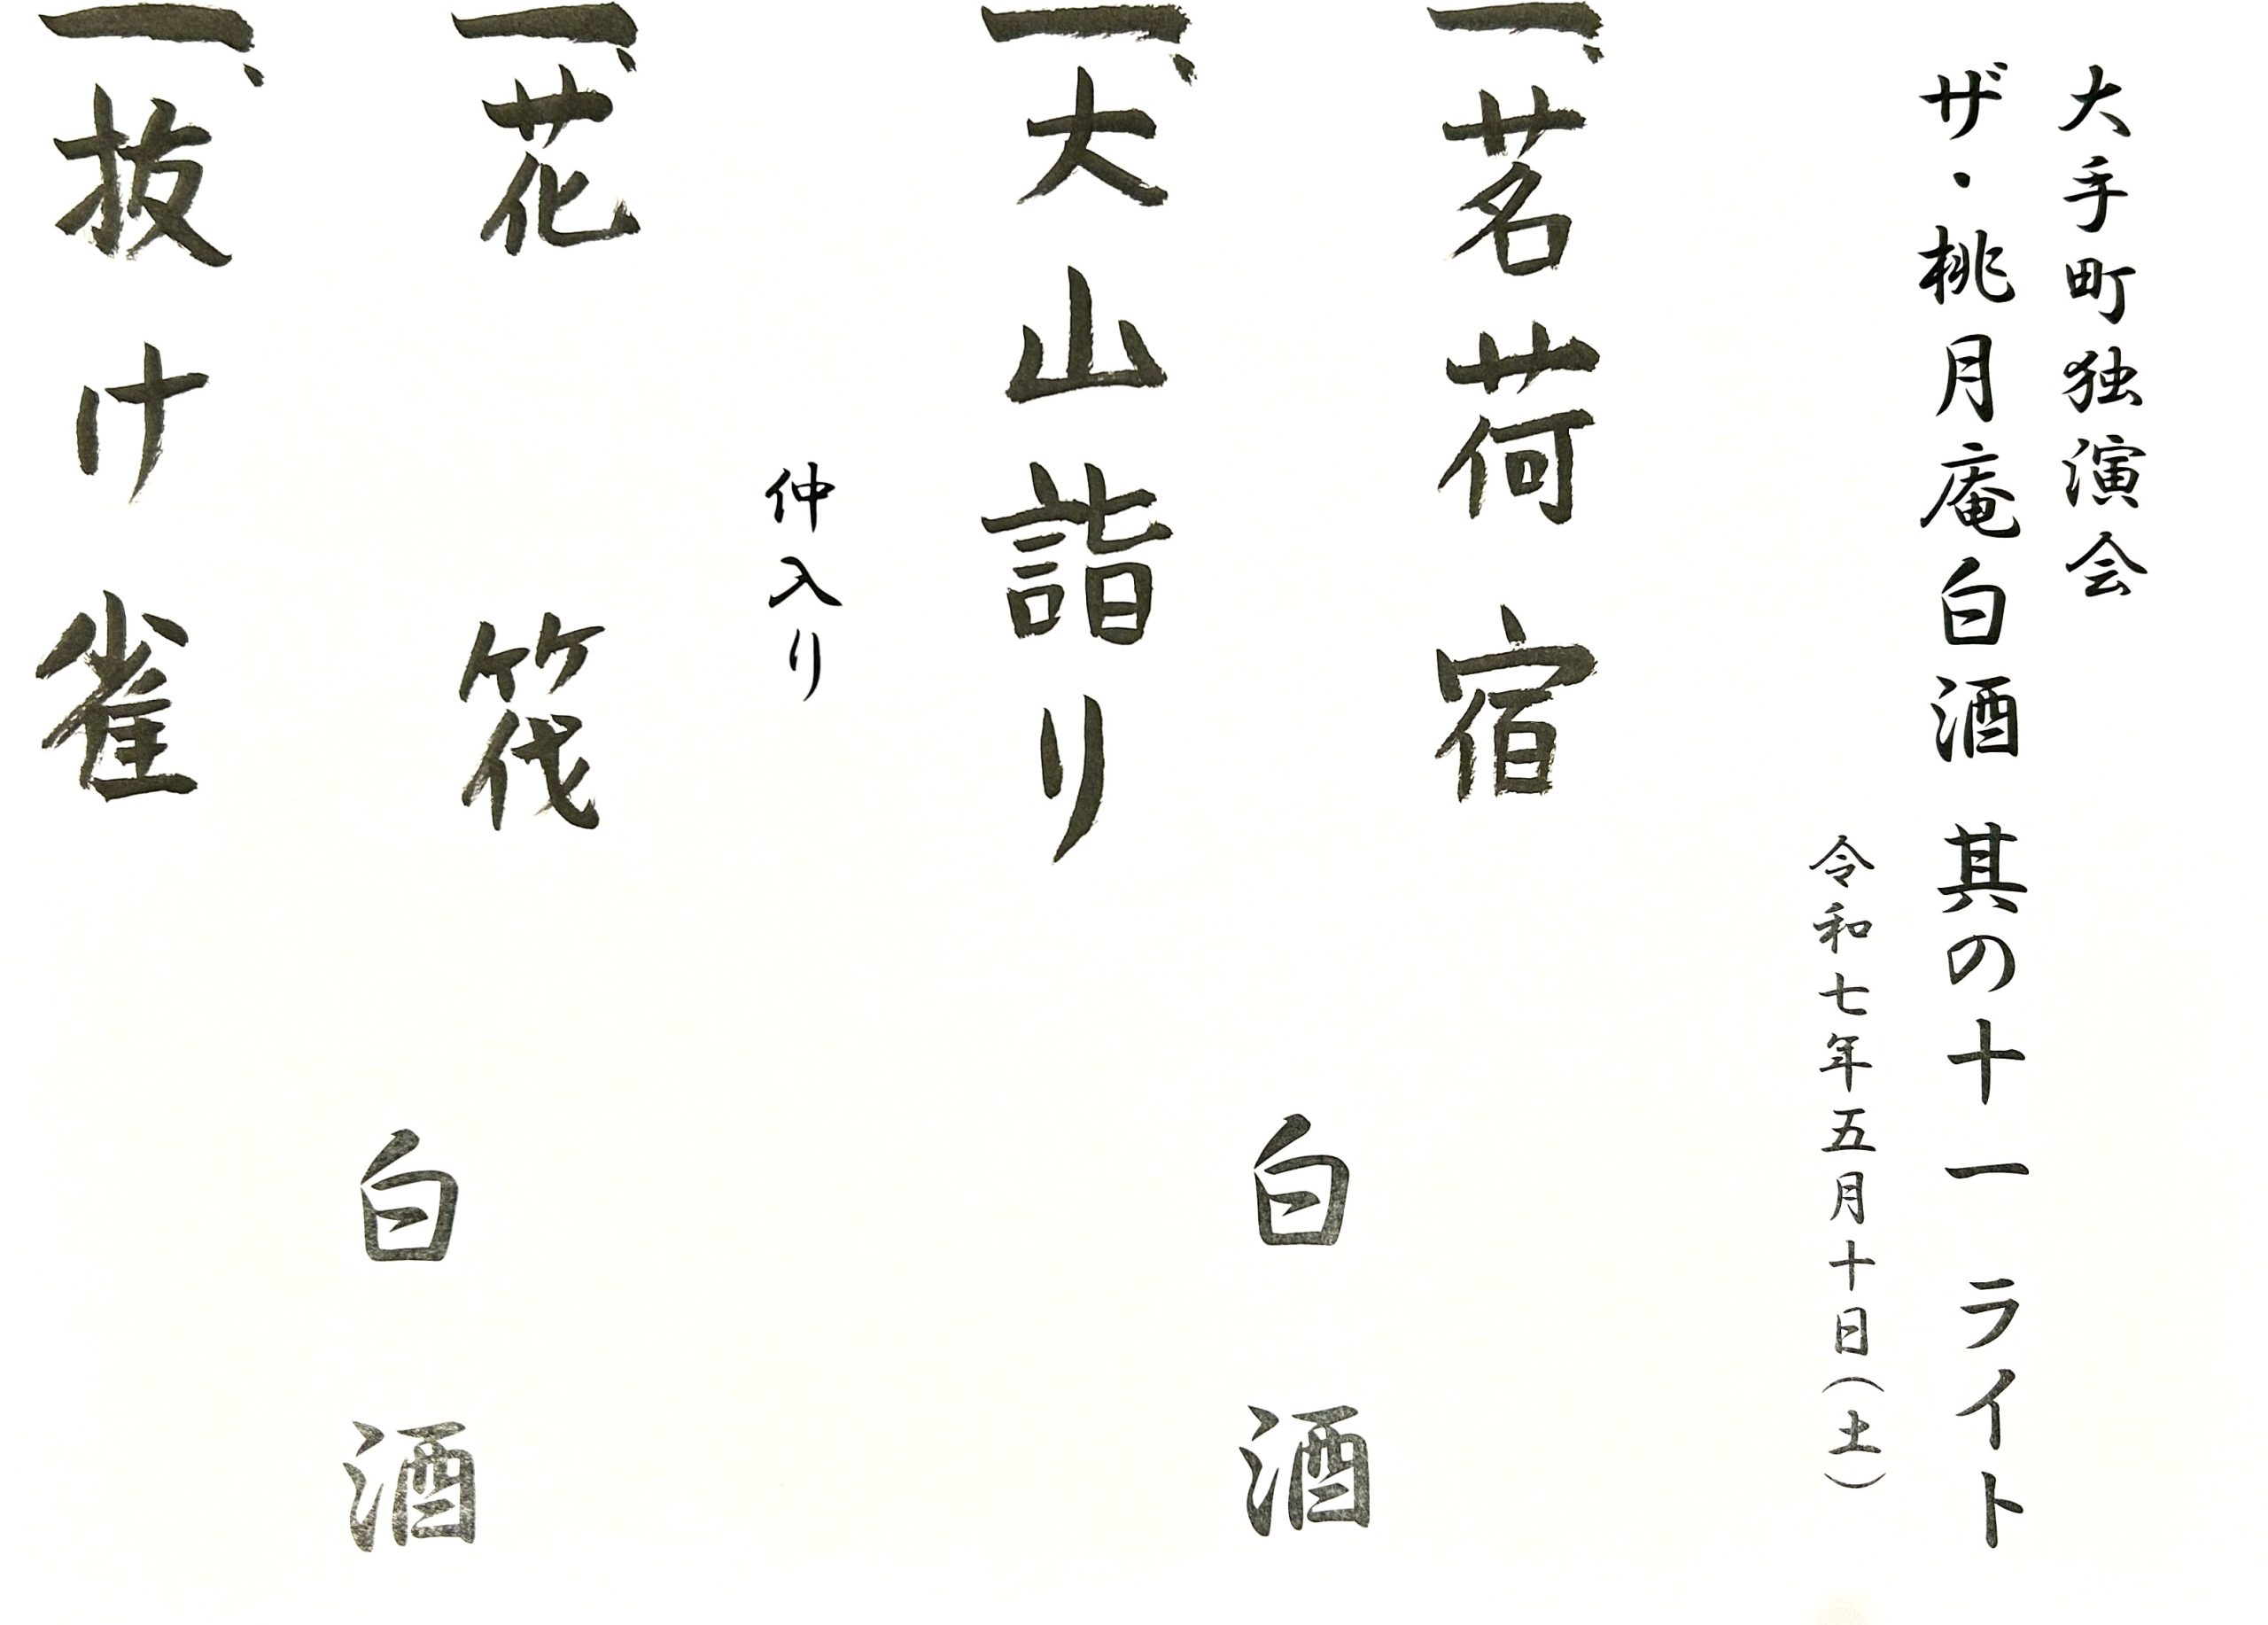 大手町独演会
ザ・桃月庵白酒 其の十一 ライト
令和七年五月十日(土)
一、茗荷宿
一、大山詣り
白酒
仲入り
一、花筏
一、抜け雀
白酒